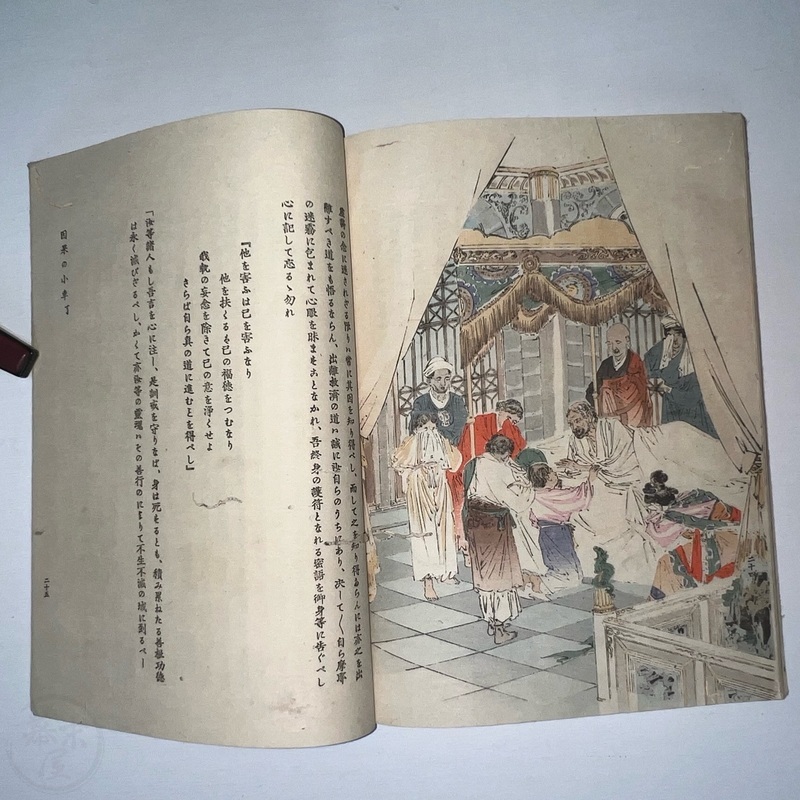 の念に遮されざる限りハ常に其因を知り得べし、而して之を知り得るらんには亦之を出
離すべき道をも悟るならん、出離救済の道ハ誠に汝自らのうちにあり、決して〱自ら摩耶
の迷霧に包まれて心眼を眛ますことなかれ、吾終身の護符となれる密語を御身等に告ぐべし
心に記して忘るゝ勿れ
『他を害ふは己を害ふなり
他を扶くるも己の福徳をつむなり
我執の妄念を除きて己の意を浄くせよ
さらば自ら真の道に進むとを得べし』
「汝等諸人もし吾言を心に注し、是訓戒を守りなば、身は死するとも、積み累ねたる善根功徳
は永く滅びざるべし、かくて亦汝等の霊魂ハその善行のによりて不生不滅の域に到るべし
因果の小車
二十五